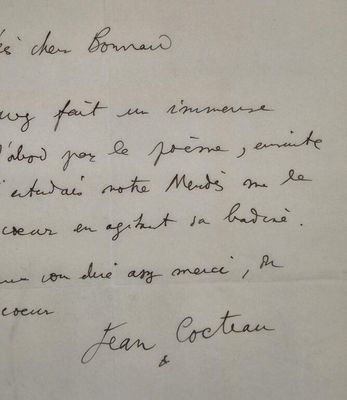 cher Bonnard
fait un immense
d'abord par le poème, ensuite
entendais notre Mendès me le
coeur en agitant sa badine.
vous dire assez merci, du
coeur
Jean Cocteau